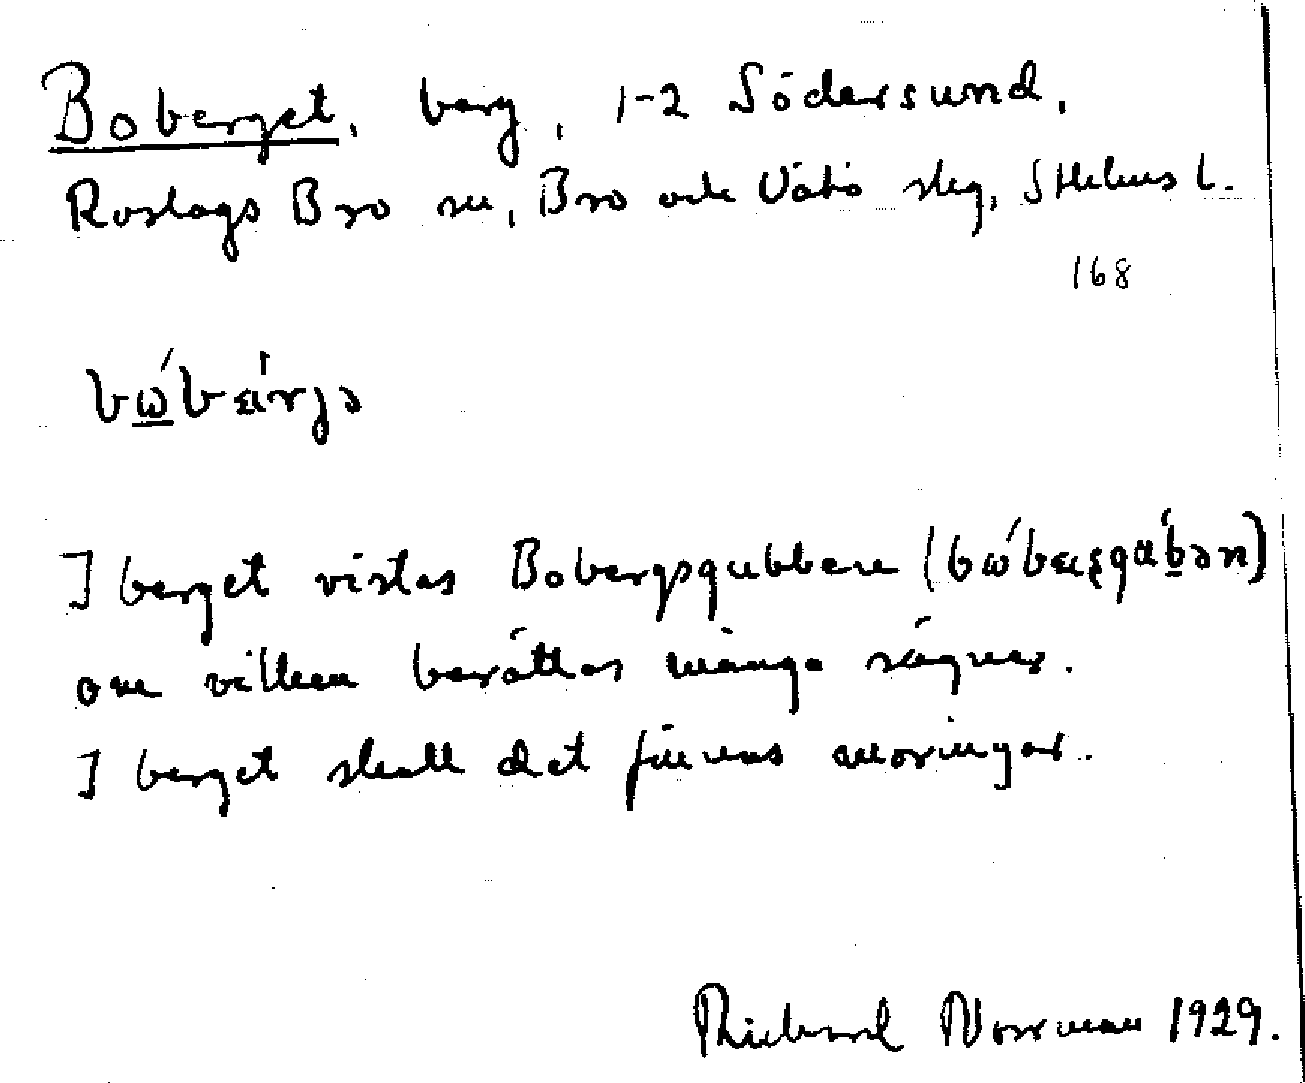 Boberget, berg, 1-2 Södersund,
Roslags Bro sn, Bro och Vätö skg, Sthlms l.
168
I berget vistas Bobergsgubben
om vilken berättas många sägner.
I berget skall det finnas moringar.
Richard Norrman 1929.